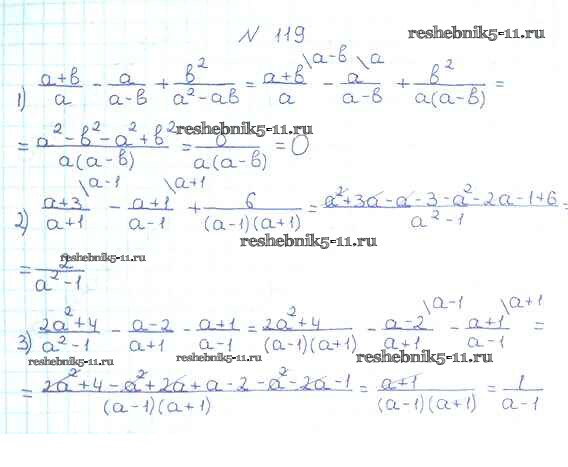 N 119 reshebnik5-11.ru
1) (a+b)/a - a/(a-b) + b²/(a²-ab) = (a+b)/a \a-b - a/(a-b) \a + b²/(a(a-b)) =
= (a²-b²-a²+b²)/(a(a-b)) = 0/(a(a-b)) = 0
reshebnik5-11.ru
2) (a+3)/(a+1) \a-1 - (a+1)/(a-1) \a+1 + 6/((a-1)(a+1)) = (a²+3a-a-3-a²-2a-1+6)/(a²-1) =
reshebnik5-11.ru
= 2/(a²-1) reshebnik5-11.ru
3) (2a²+4)/(a²-1) - (a-2)/(a+1) - (a+1)/(a-1) = (2a²+4)/((a-1)(a+1)) - (a-2)/(a+1) \a-1 - (a+1)/(a-1) \a+1 =
reshebnik5-11.ru reshebnik5-11.ru reshebnik5-11.ru
= (2a²+4-a²+2a+a-2-a²-2a-1)/((a-1)(a+1)) = (a+1)/((a-1)(a+1)) = 1/(a-1)